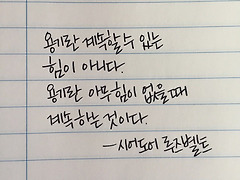 용기란 계속할 수 있는
힘이 아니다.
용기란 아무 힘이 없을 때
계속 하는 것이다.
—시어도어 루즈벨트